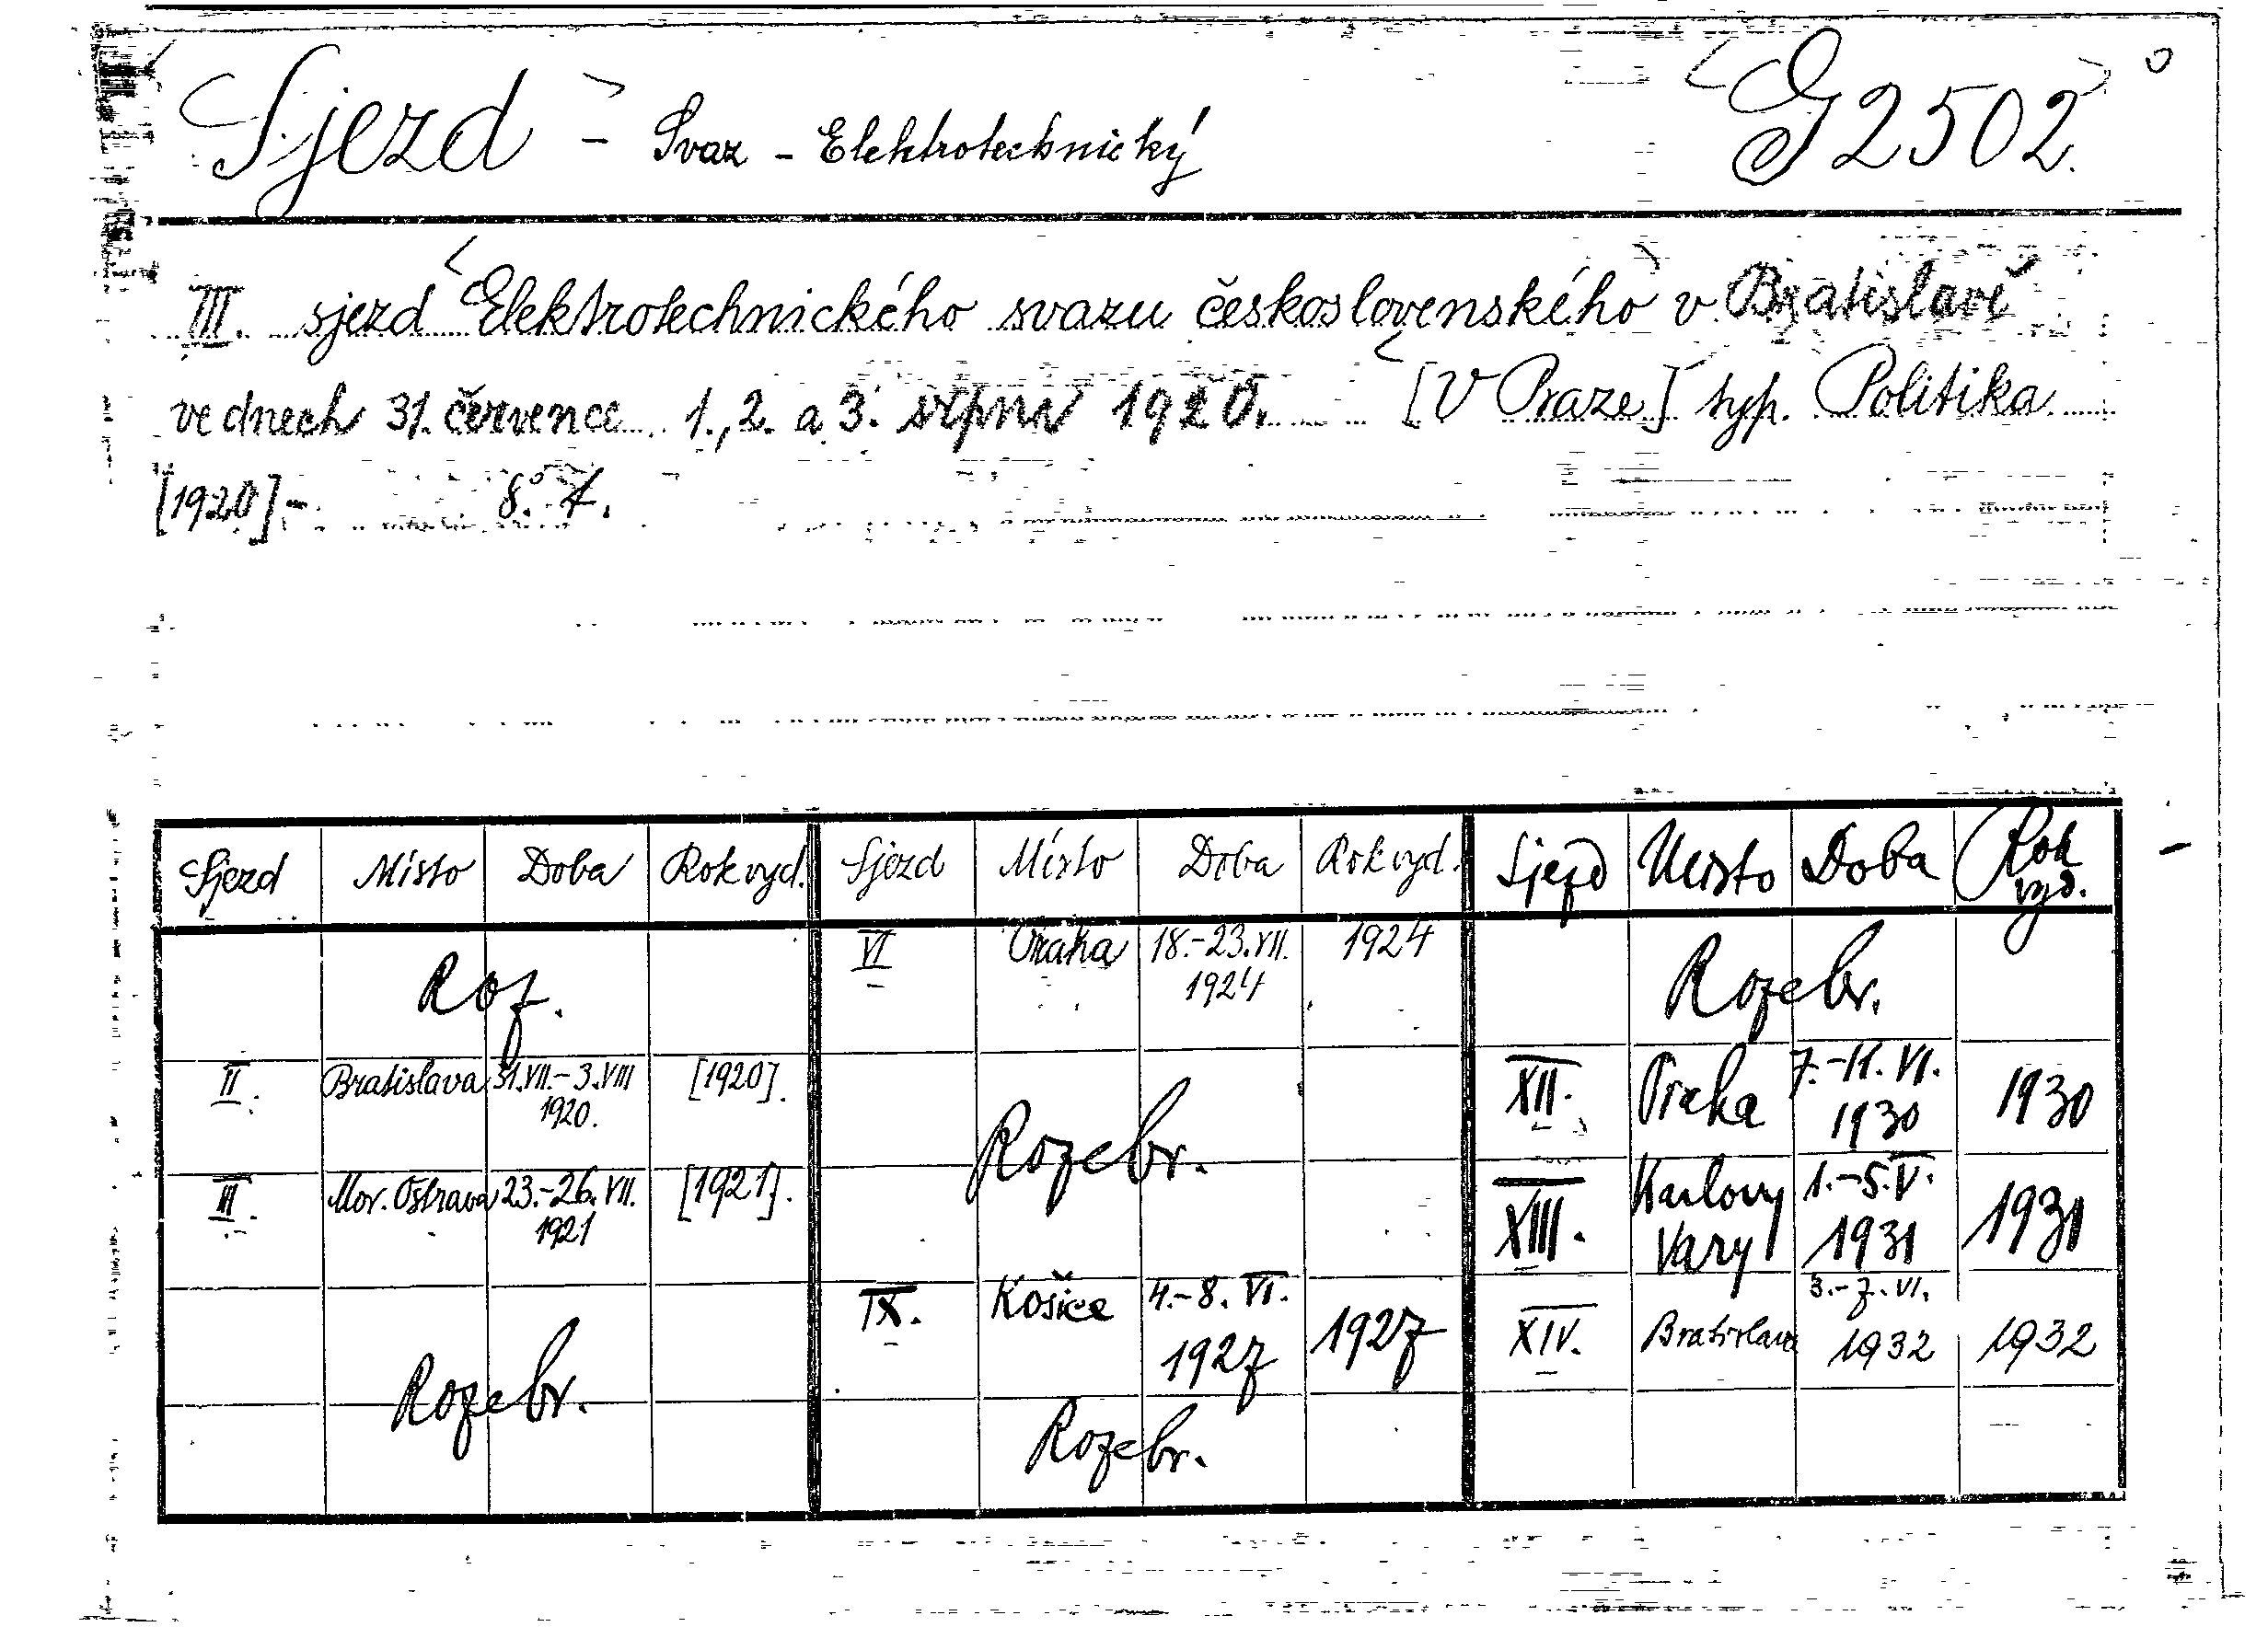 Sjezd - Svaz - Elektrotechnický G 2502.
III. sjezd Elektrotechnického svazu československého v Bratislavě
ve dnech 31. července 1., 2. a 3. srpna 1920. [V Praze] typ. Politika
[1920] - 8° 7.
Sjezd Místo Doba Rok vyd. Sjezd Místo Doba Rok vyd. Sjezd Místo Doba Rok vyd.
Roz. VI Praha 18.-23.VII. 1924 1924 Rozebr.
II. Bratislava 31.VII.-3.VIII 1920. [1920]. Rozebr. XII. Praha 7.-11.VI. 1930 1930
III. Mor. Ostrava 23.-26.VII. 1921 [1921]. XIII. Karlovy Vary 1.-5.V. 1931 1931
Rozebr. IX. Košice 4.-8.VI. 1927 1927 XIV. Bratislava 3.-7.VI. 1932 1932
Rozebr.